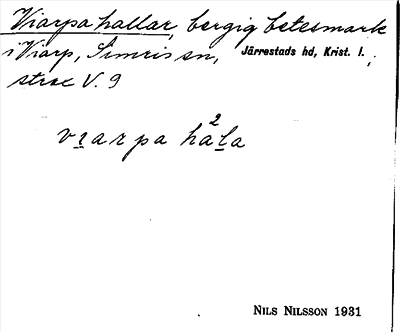 Viarpa hallar, bergig betesmark
i Viarp, Simris sn, Järrestads hd, Krist. l.,
strax V. 9
vɪarpa ha²l̲a
NILS NILSSON 1931